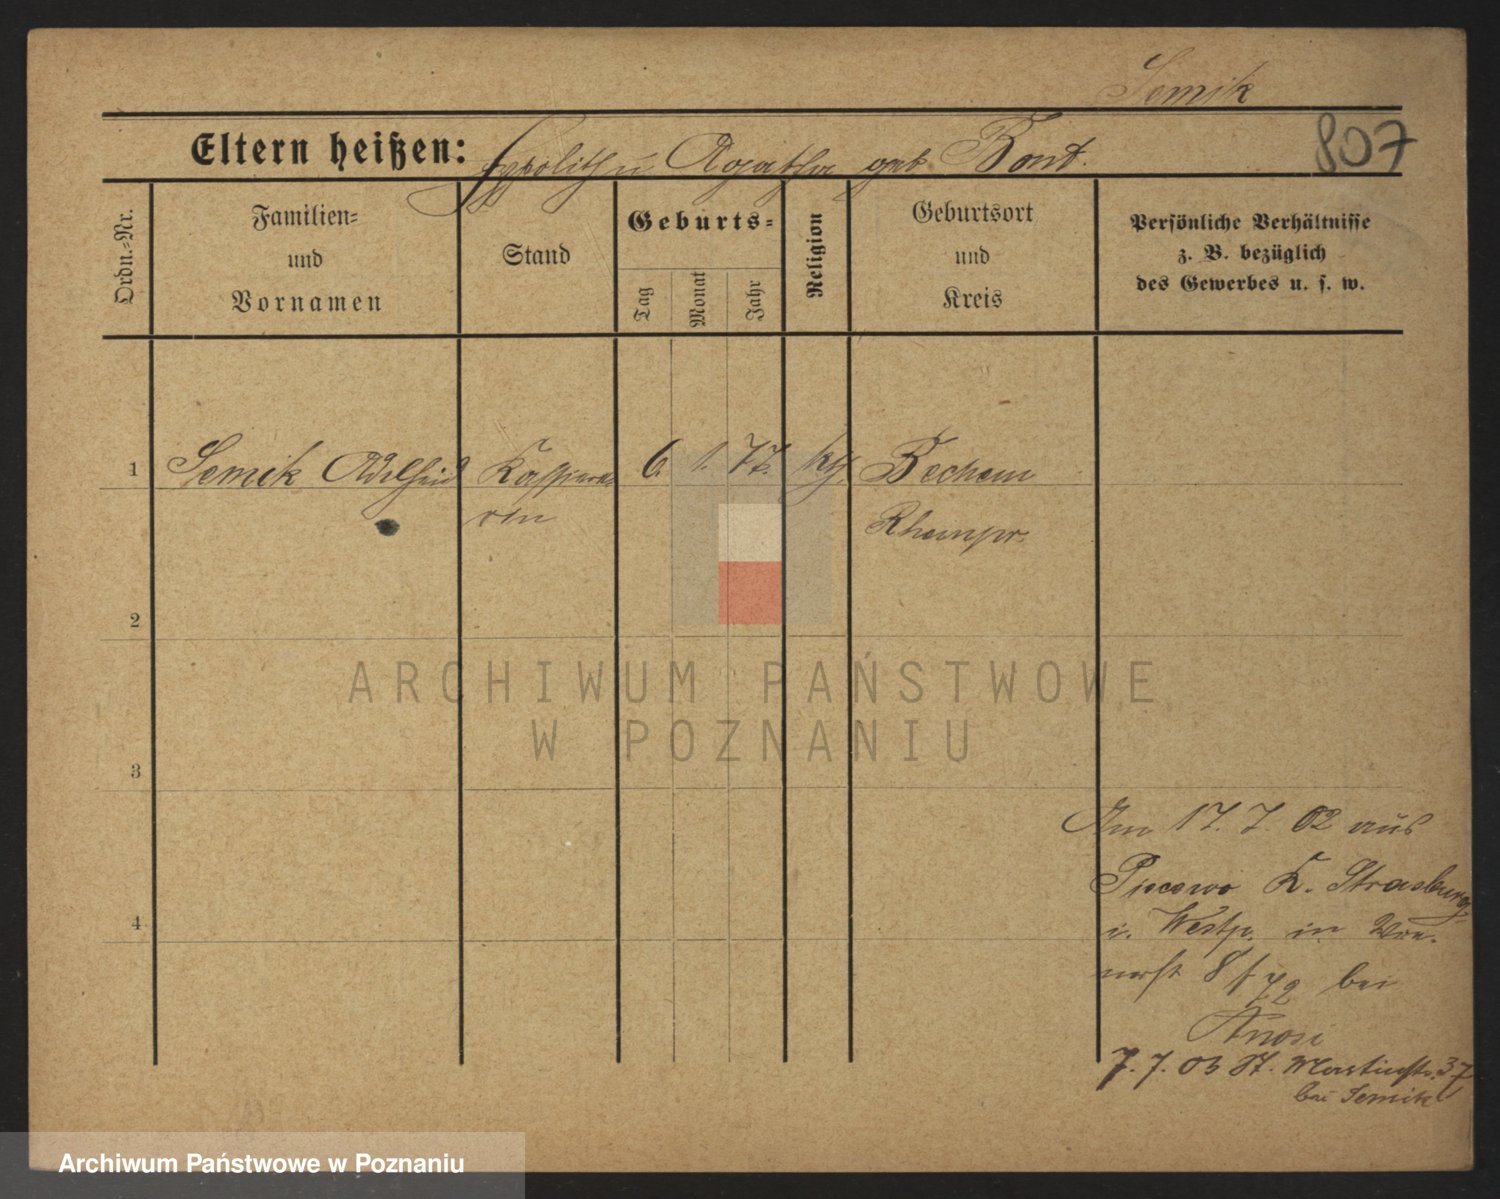 Semik
807
Eltern heißen: Hypolith u. Agatha geb. Bont.
Ordn.-Nr.
Familien-
und
Vornamen
Stand
Geburts-
Tag
Monat
Jahr
Religion
Geburtsort
und
Kreis
Persönliche Verhältnisse
z. B. bezüglich
des Gewerbes u. s. w.
1 Semik Adelheid Kassiere- 6. 1. 77. kth. Bochum
rin Rheinpr.
2
3
4
ARCHIWUM PAŃSTWOWE
W POZNANIU
Am 17. 7. 02 aus
K. Strasburg
i. Westp. in
8/ 72 bei
7. 7. 03 St. Martinstr. 37
bei Semik
Archiwum Państwowe w Poznaniu